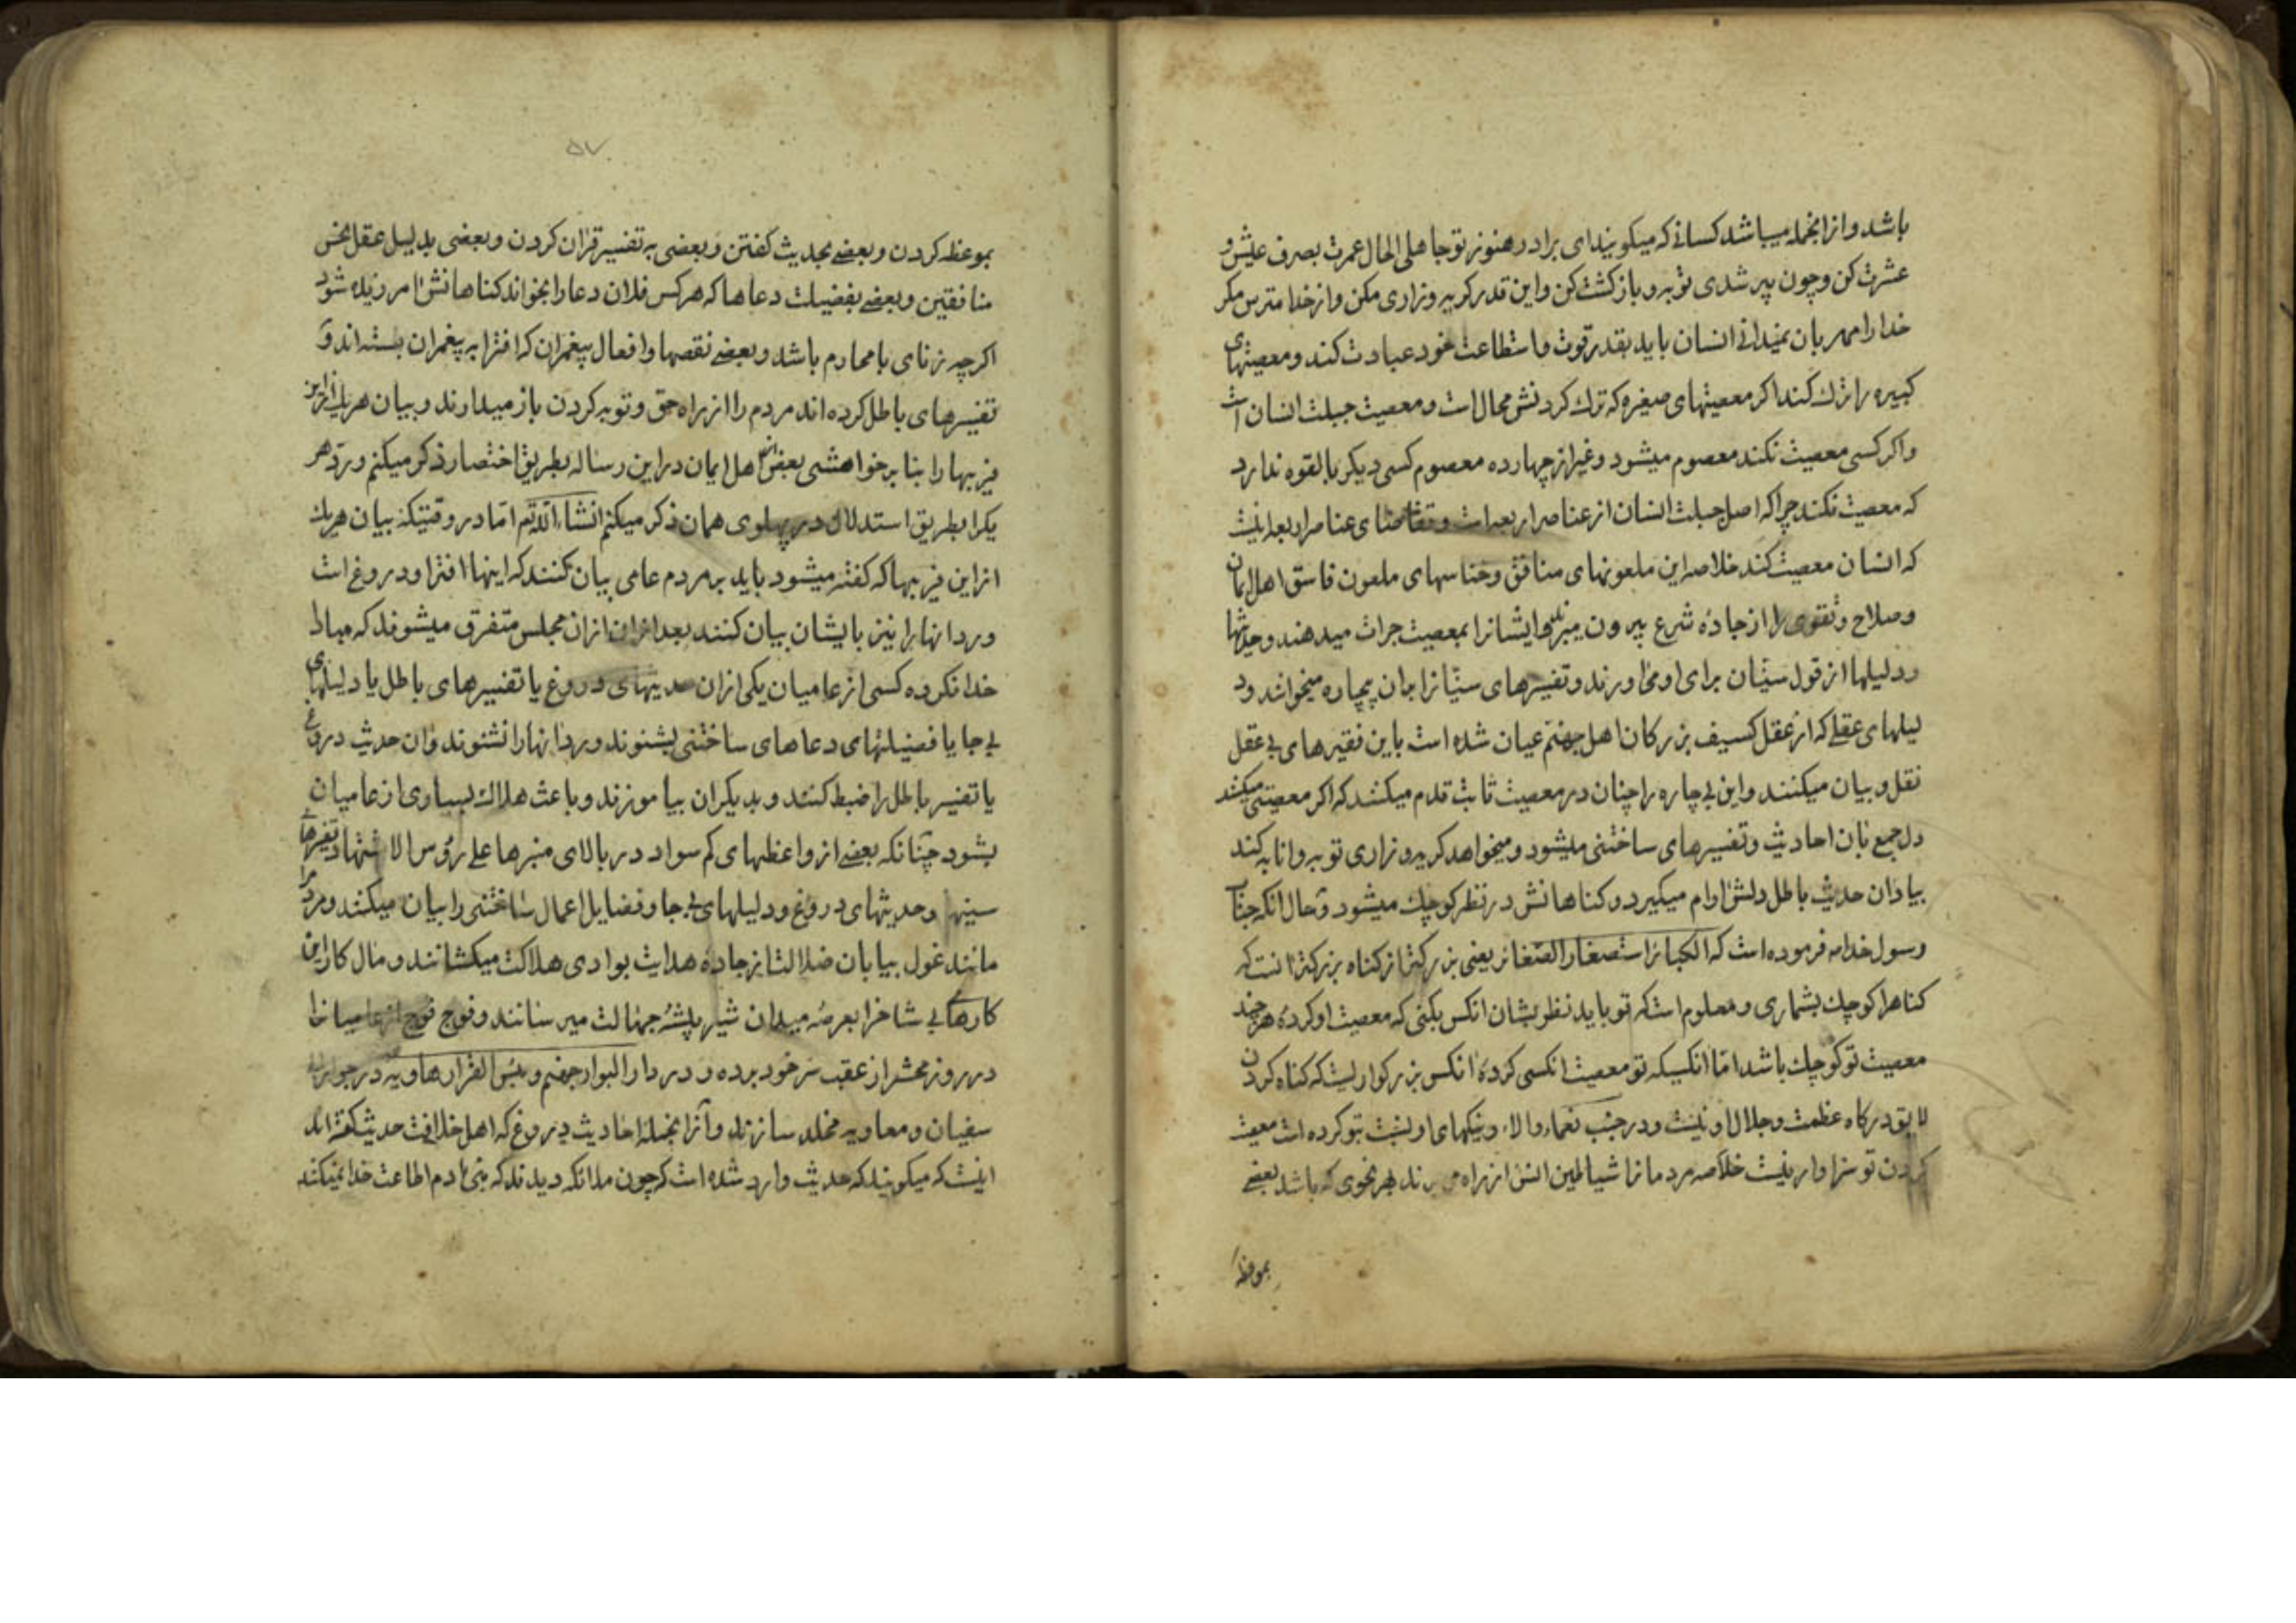 باشد و از انجمله میباشد کسانی که میکویند ای برادر هنوز تو جاهلی الحال عمرت بصرف عیش و
عشرت کن و چون پیر شدی توبه و بازکشت کن و این قدر کریه و زاری مکن و از خدا مترس مکر
خدا را مهربان نمیدانی انسان باید بقدر قوت و استطاعت خود عبادت کند و معصیتهای
کبیره را ترك کند اکر معصیتهای صغیره که ترك کردنش محال است و معصیت جبلت انسان است
و اکر کسی معصیت نکند معصوم میشود و غیر از چهارده معصوم کسی دیکر بالقوه ندارد
که معصیت نکند چرا که اصل جبلت انسان از عناصر اربعه است و تقاضای عناصر اربعه اینست
که انسان معصیت کند خلاصه این ملعونهای منافق و خناسهای ملعون فاسق اهل ایمان
و صلاح و تقوی را از جادهٔ شرع بیرون میبرند و ایشانرا بمعصیت جرات میدهند و حدیثها
و دلیلها از قول سنیّان برای او می اورند و تفسیرهای سنیّانرا بران بیچاره میخوانند و د
لیلهای عقلی که از عقل کسیف بزرکان اهل جهنم عیان شده است باین فقیرهای بی عقل
نقل و بیان میکنند و این بی چاره را چنان در معصیت ثابت قدم میکشد که اکر معصیتی میکشد
دل جمع بان احادیث و تفسیرهای ساختنی میشود و میخواهد کریه و زاری توبه و انابه کند
بیاد ان حدیث باطل دلش ارام میکیرد و کناهانش در نظر کوچك میشود و حال انکه جناب
رسول خدا صه فرموده است که الکبائر استصغار الصغائر یعنی بزرکتر از کناه بزرکتر انست که
کناه را کوچك بشماری و معلوم است که تو باید نظر بشان انکس بکنی که معصیت او کردهٔ هر چند
معصیت تو کوچك باشد اما انکسیکه تو معصیت انکسی کردهٔ انکس بزرکواریست که کناه کردن
لایق درکاه عظمت و جلال او نیست و در جنب نعماء و الاء و نیکهای او نسبت بتو کرده است معصیت
کردن تو سزاوار نیست خلاصه مردمانرا شیاطین انس از راه می برند بهر نحوی که باشد بعضی
بموعظه
۵۷
بموعظه کردن و بعضی بحدیث کفتن و بعضی به تفسیر قران کردن و بعضی بدلیل عقل نحس
منافقین و بعضی بفضیلت دعاها که هر کس فلان دعا را بخواند کناهانش امرزیده شود
اکرچه زنای با محارم باشد و بعضی نقصها و افعال پیغمران که افترا به پیغمران بسته اند و
تفسیرهای باطل کرده اند مردم را از راه حق و توبه کردن باز میدارند و بیان هریك از این
فریبها را بنابر خواهشی بعضی اهل ایمان در این رساله بطریق اختصار ذکر میکنم و رد هر
یکرا بطریق استدلال در پهلوی همان ذکر میکنم انشاء الله تعم اما در وقتیکه بیان هریك
از این فریبها که کفته میشود باید بر مردم عامی بیان کنند که اینها افترا و دروغ است
و رد انها را نیز بایشان بیان کنند بعد ازان ازان مجلس متفرق میشوند که مبادا
خدا نکرده کسی از عامیان یکی ازان حدیثهای دروغ یا تفسیرهای باطل یا دلیلهای
بی جا یا فضیلتهای دعاهای ساختنی بشنوند و رد انها را نشنوند و ان حدیث دروغ
یا تفسیر باطل را ضبط کنند و بدیکران بیاموزند و باعث هلاك بسیاری از عامیان
بشود چنانکه بعضی از واعظهای کم سواد در بالای منبرها علی رؤس الاشتهاد تفسیرهای
سینها و حدیثهای دروغ و دلیلهای بی جا و فضایل اعمال ساختنی را بیان میکنند و مردم را
مانند غول بیابان ضلالت از جادهٔ هدایت بوادی هلاکت میکشانند و مال کار این
کارهای بی شاخرا بعرصهٔ میدان شیر بیشهٔ جهالت میرسانند و فوج فوج از عامیانرا
در روز محشر از عقب سر خود برده و در دار البوار جهنم و بئس القرار هاویه در جوار
سفیان و معاویه مخلد سازند و از انجمله احادیث دروغ که اهل خلافت حدیث کفته اند
اینست که میکویند که حدیث وارد شده است که چون ملائکه دیدند که بنی ادم اطاعت خدا نمیکند